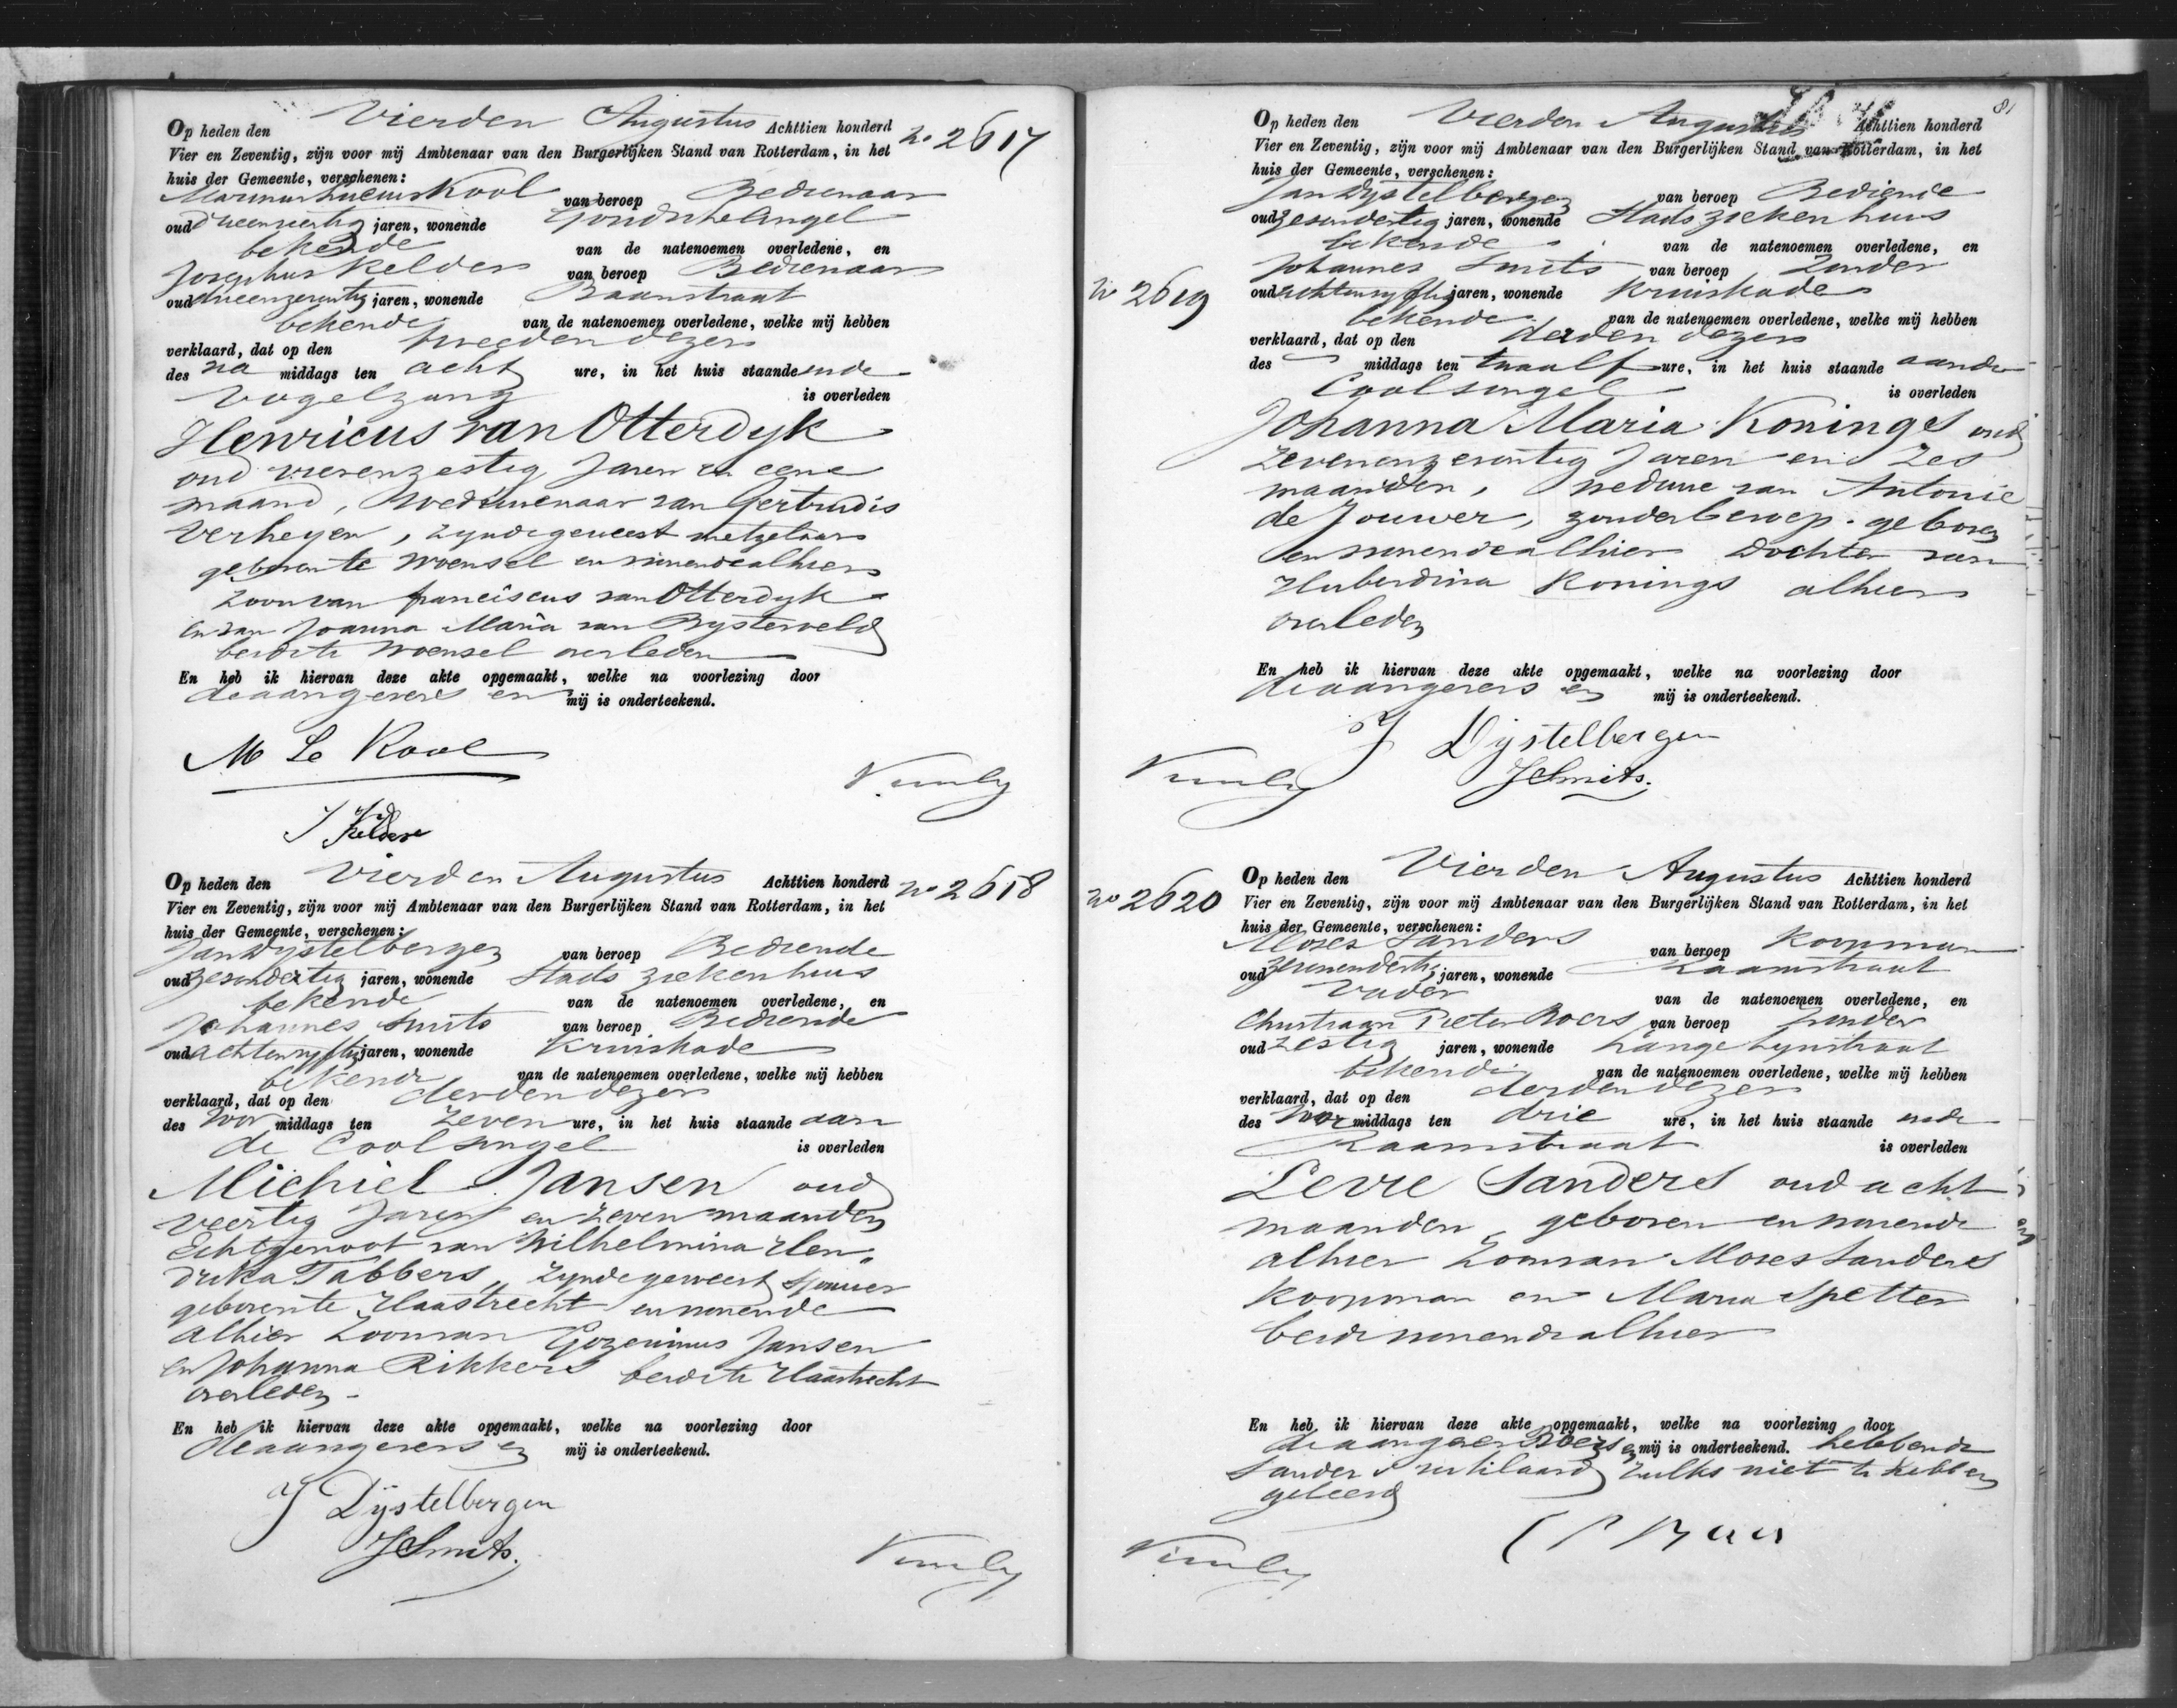 Op heden den Vierden Augustus Achttien honderd
No 2617
Vier en Zeventig, zijn voor mij Ambtenaar van den Burgerlijken Stand van Rotterdam, in het
huis der Gemeente, verschenen:
Marinus Kool van beroep Bedienaar
oud jaren, wonende Goudschesingel
bekende van de natenoemen overledene, en
Josephus Kelders van beroep Bedienaar
oud drieenzeventig jaren, wonende Baanstraat
bekende van de natenoemen overledene, welke mij hebben
verklaard, dat op den tweeden dezer
des na middags ten acht ure, in het huis staande in de
Vogelzang is overleden
Henricus van Otterdyk
oud vierenzestig Jaren en eene
maand, Weduwenaar van Gertrudis
Verheyen, zynde geweest metzelaar
geboren te Woensel en wonende alhier
Zoon van franciscus van Otterdyk
en van Joanna Maria van Bysterveld
beide te Woensel overleden
En heb ik hiervan deze akte opgemaakt, welke na voorlezing door
de aangevers en mij is onderteekend.
M Le Kool
J Kelders
Op heden den Vierden Augustus Achttien honderd
No 2618
Vier en Zeventig, zijn voor mij Ambtenaar van den Burgerlijken Stand van Rotterdam, in het
huis der Gemeente, verschenen:
Jan Dystelbergen van beroep Bediende
oud zesendertig jaren, wonende Stads ziekenhuis
bekende van de natenoemen overledene, en
Johannes Smits van beroep Bediende
oud achtenvyftig jaren, wonende Kruiskade
bekende van de natenoemen overledene, welke mij hebben
verklaard, dat op den derden dezer
des voor middags ten zeven ure, in het huis staande aan
de Coolsingel is overleden
Michiel Jansen oud
veertig Jaren en zeven maanden
Echtgenoot van Wilhelmina Hen„
drika Tabbers, zynde geweest Sjouwer
geboren te Haastrecht en wonende
alhier Zoon van Gozewinus Jansen
en Johanna Rikkers beide te Haastrecht
overleden -
En heb ik hiervan deze akte opgemaakt, welke na voorlezing door
de aangevers en mij is onderteekend.
J Dijstelbergen
J Smits.
81
Op heden den Vierden Augustus Achttien honderd
Vier en Zeventig, zijn voor mij Ambtenaar van den Burgerlijken Stand van Rotterdam, in het
huis der Gemeente, verschenen:
Jan Dystelbergen van beroep Bediende
oud zesendertig jaren, wonende Stads ziekenhuis
bekende van de natenoemen overledene, en
Johannes Smits van beroep Zonder
No 2619
oud achtenvyftig jaren, wonende Kruiskade
bekende van de natenoemen overledene, welke mij hebben
verklaard, dat op den derden dezer
des middags ten twaalf ure, in het huis staande aan de
Coolsingel is overleden
Johanna Maria Konings oud
Zevenenzeventig Jaren en Zes
maanden, weduwe van Antonie
de Jouwer, zonder beroep. geboren
en wonende alhier Dochter van
Huberdina Konings alhier
overleden
En heb ik hiervan deze akte opgemaakt, welke na voorlezing door
de aangevers en mij is onderteekend.
J Dijstelbergen
J Smits.
Op heden den Vierden Augustus Achttien honderd
No 2620
Vier en Zeventig, zijn voor mij Ambtenaar van den Burgerlijken Stand van Rotterdam, in het
huis der Gemeente, verschenen:
Moses Sanders van beroep Koopman
oud zevenendertig jaren, wonende Raamstraat
Vader van de natenoemen overledene, en
Christiaan Pieter Boers van beroep Zonder
oud zestig jaren, wonende Lange Lynstraat
bekende van de natenoemen overledene, welke mij hebben
verklaard, dat op den derden dezer
des voor middags ten drie ure, in het huis staande in de
Raamstraat is overleden
Levie Sanders oud acht
maanden, geboren en wonende
alhier Zoon van Moses Sanders
Koopman en Maria Spetter
beide wonende alhier
En heb ik hiervan deze akte opgemaakt, welke na voorlezing door
de aangever Boers en mij is onderteekend. hebbende
Sanders verklaard zulks niet te hebben
geleerd